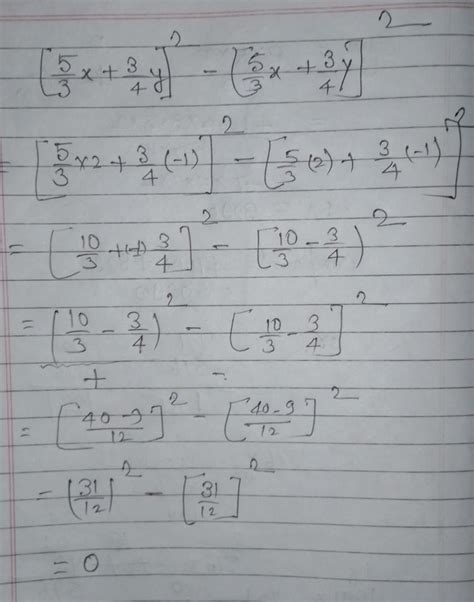 [5/3 x + 3/4 y]² - [5/3 x + 3/4 y]²
= [5/3 × 2 + 3/4 (-1)]² - [5/3 (2) + 3/4 (-1)]²
= [10/3 + (-1) 3/4]² - [10/3 - 3/4)²
= [10/3 - 3/4)² - [10/3 - 3/4]²
+ -
= [40-9/12]² - [40-9/12]²
= (31/12)² - [31/12]²
= 0